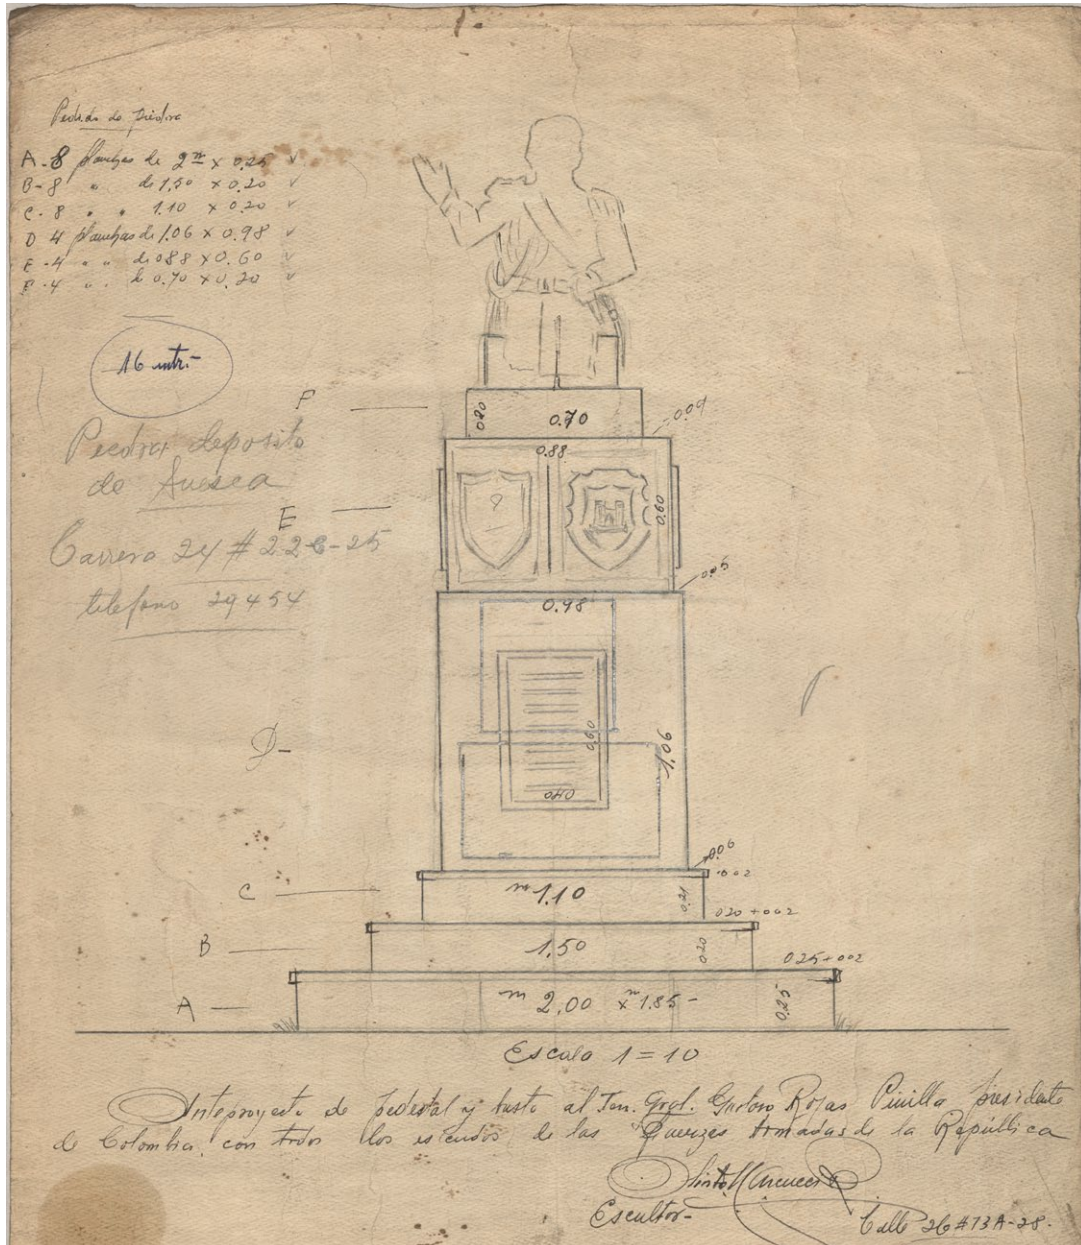 Pedido de piedra
A-8 planchas de 2m x 0.25 v
B-8 " de 1,50 x 0.20 v
C-8 " " 1.10 x 0.20 v
D 4 planchas de 1.06 x 0.98 v
E-4 " " de 0.88 x 0.60 v
F-4 " " de 0.70 x 0.20 v
16 mtr.-
Piedra deposito
de Suesca
Carrera 24 # 22c-25
telefono 29454
F
0.20
0.70
0.09
0.88
E
?
0.60
0.05
0.98
D-
0.60
1,06
0.40
0.06
0.02
C
m 1.10
0.21
020 + 002
B
1.50
0.20
025+002
A
m 2,00 x m 1.85-
0.25
Escala 1=10
Anteproyecto de pedestal y busto al Ten. Gral. Gustavo Rojas Pinilla presidente
de Colombia, con todos los escudos de las Fuerzas Armadas de la República
Escultor-
Calle 26 #13A-28.